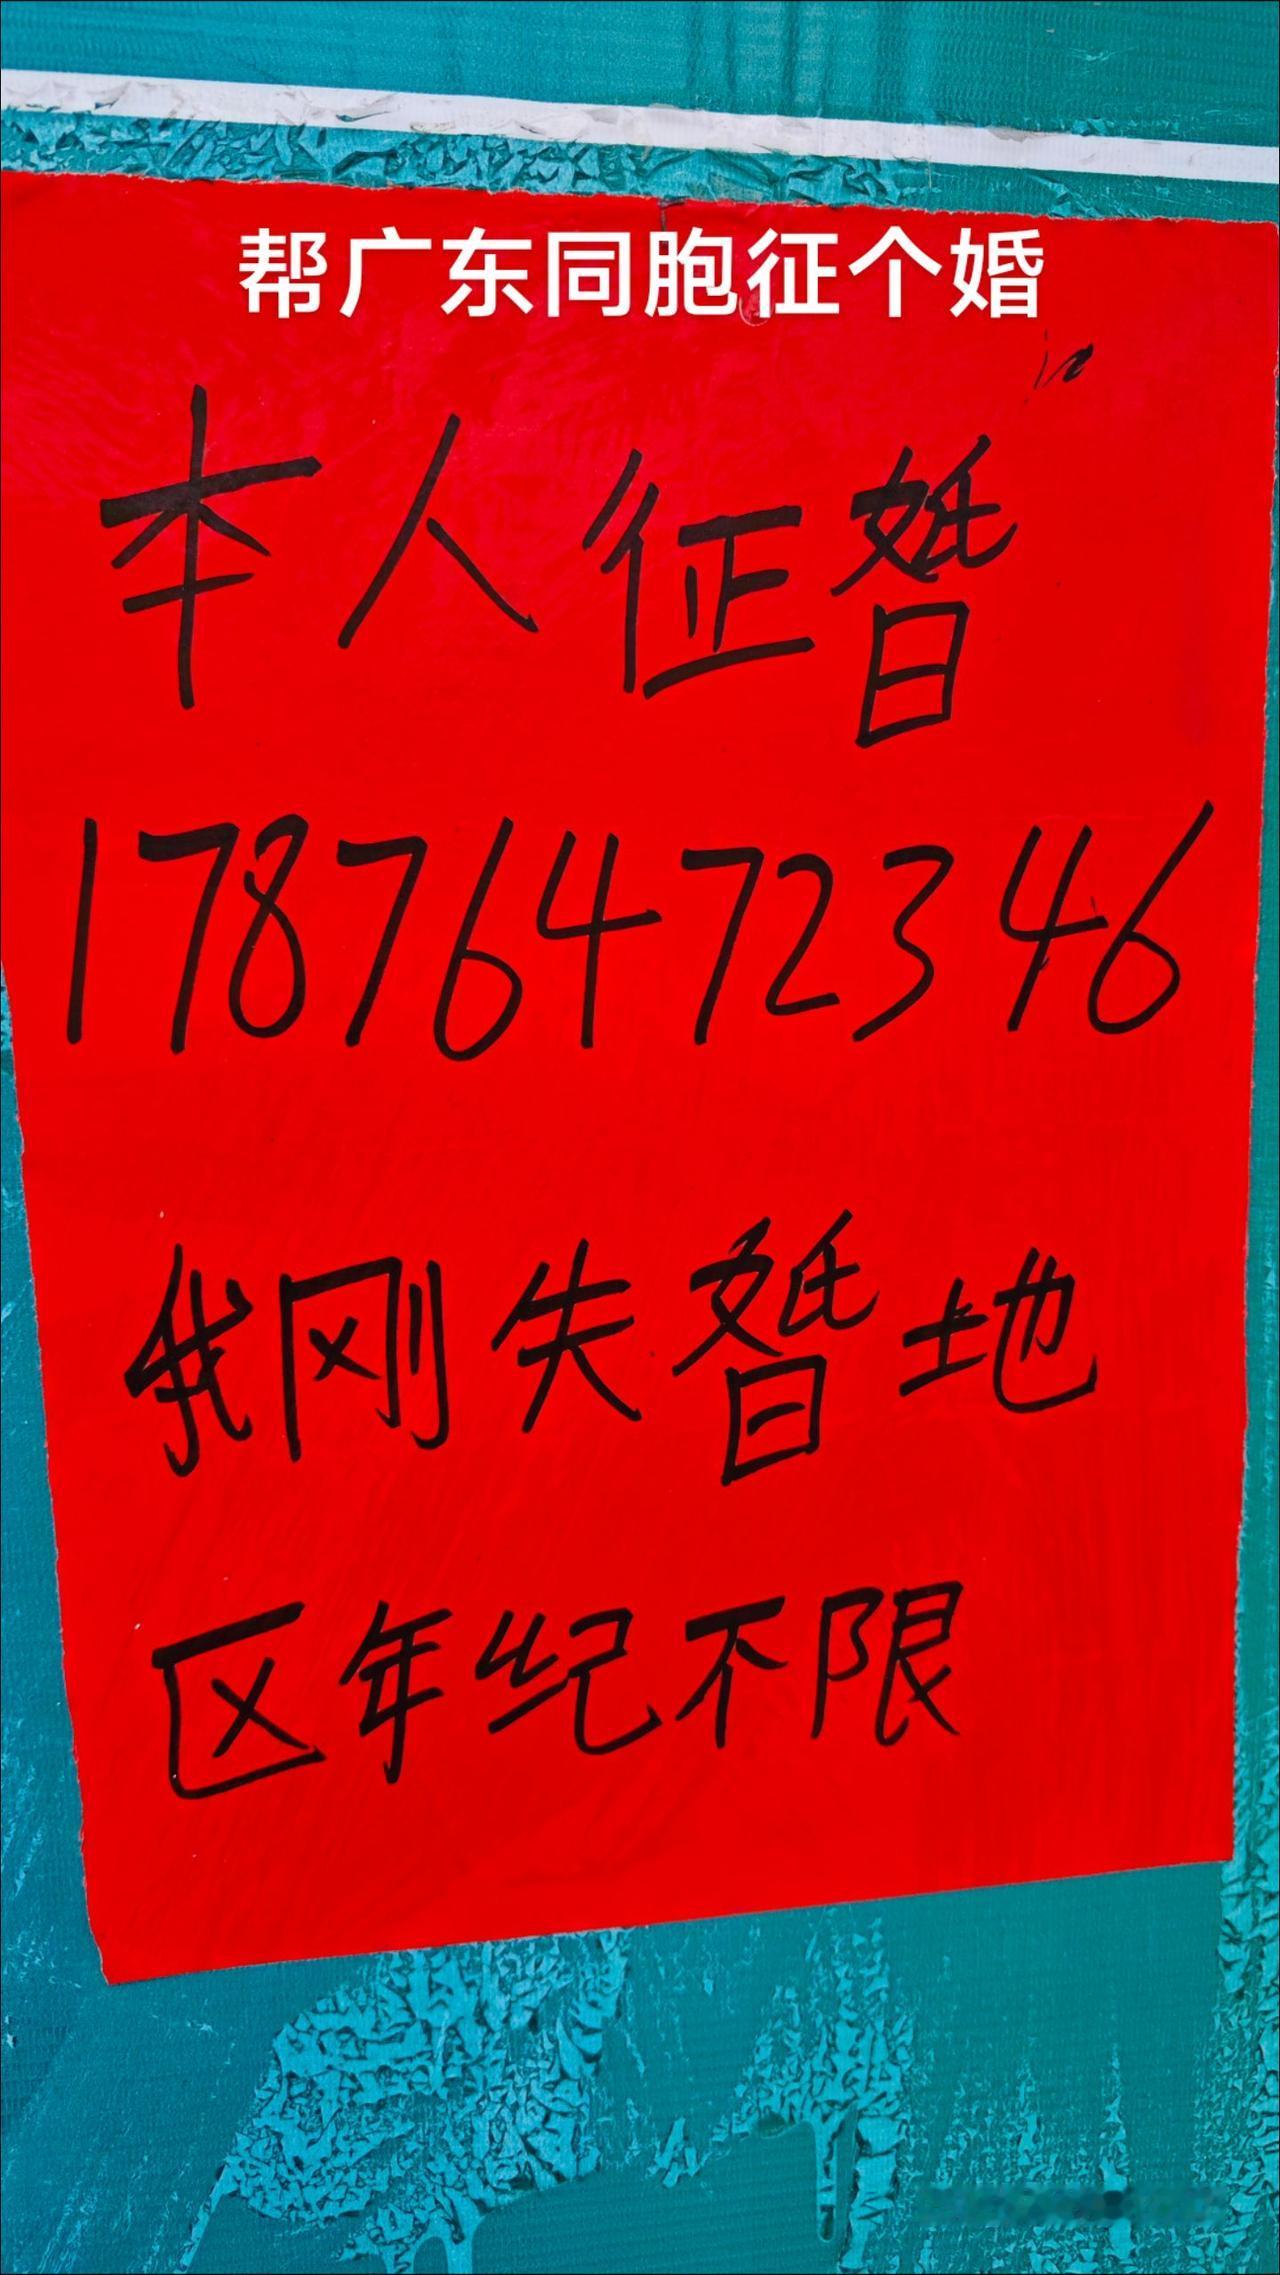 帮广东同胞征个婚
本人征婚
17876472346
我刚失婚地
区年纪不限